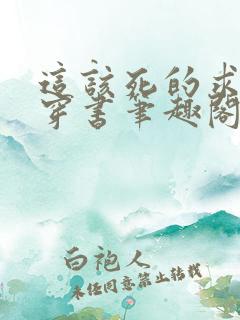 這該死的求
穿書筆趣閣
白袍人
未经同意禁止转载